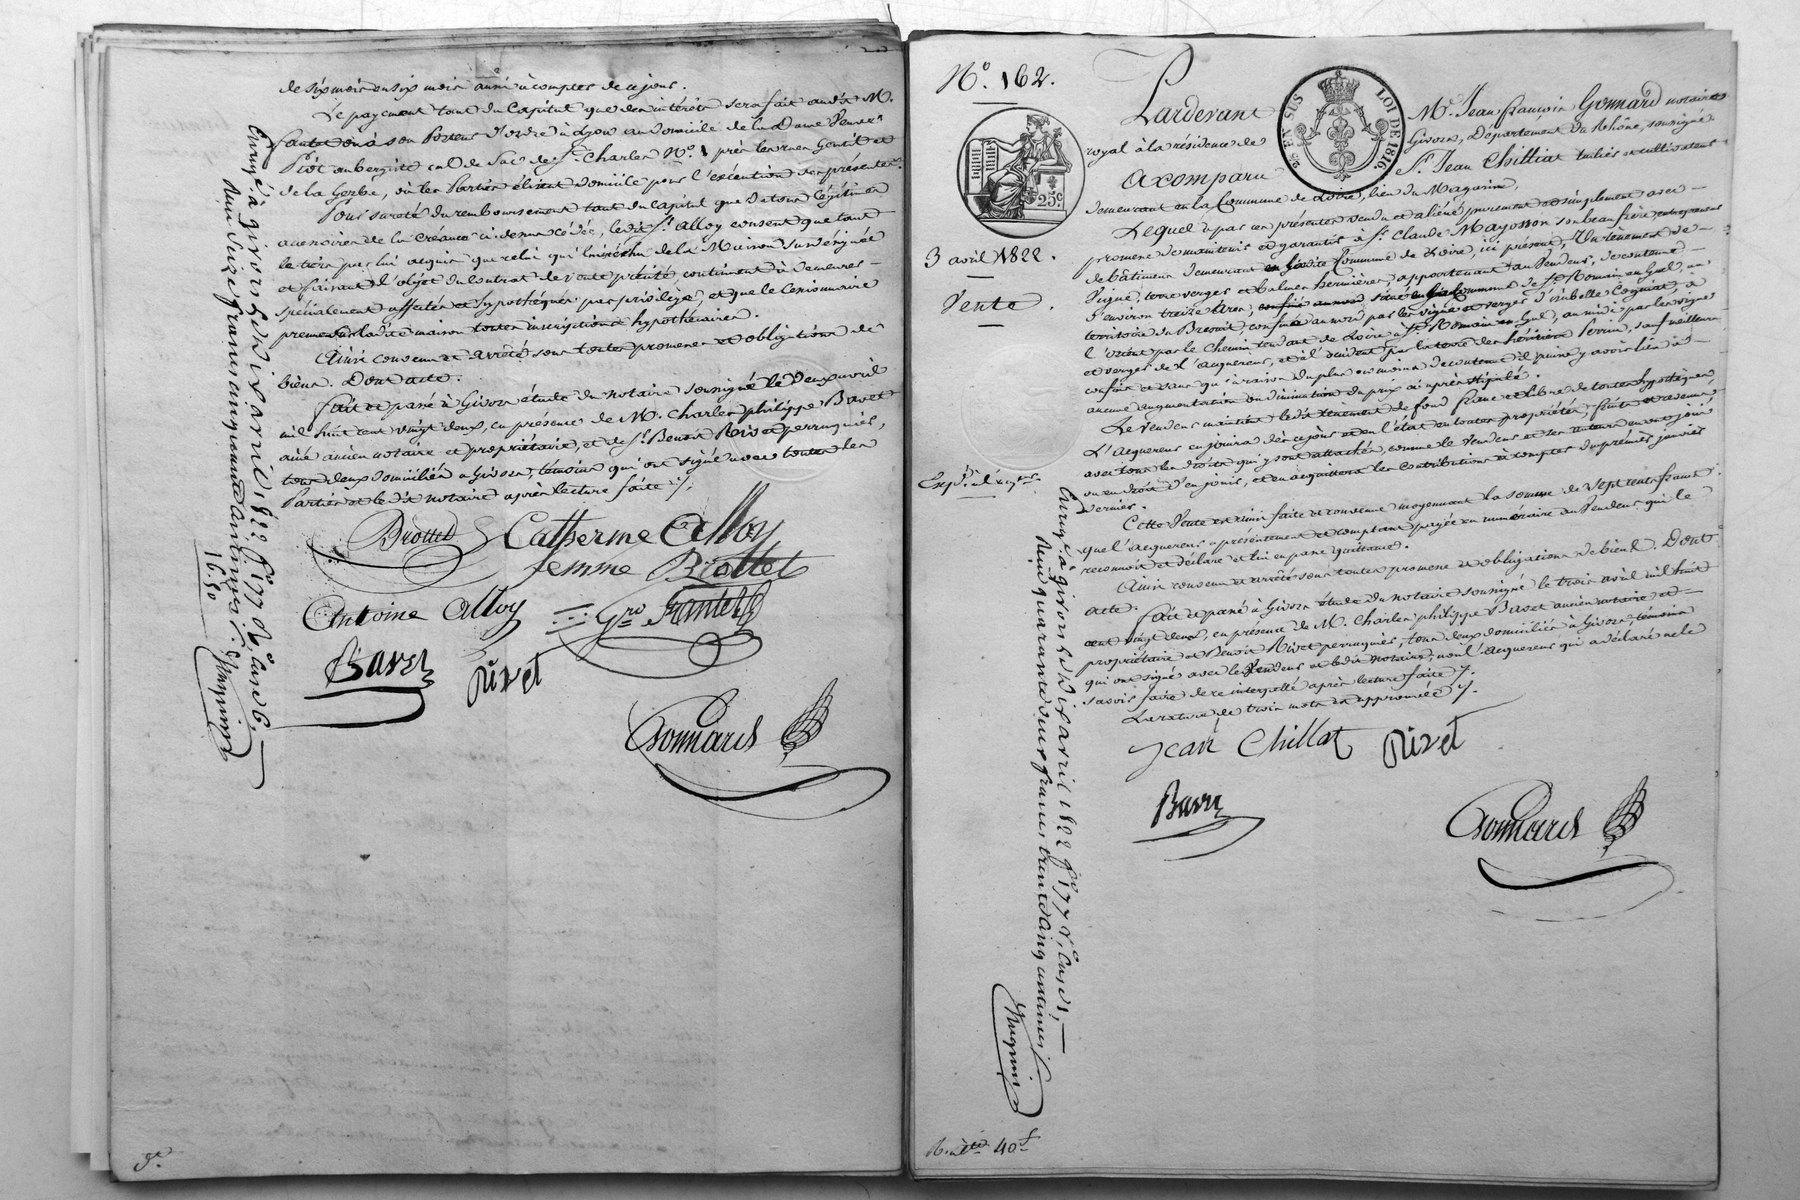 de six mois en six mois aussi à compter de ce jour.
Le payement tant du Capital que des intérêts sera fait audit M.
ou à son Porteur d'ordre à Lyon au Domicile de la Dame Veuve
Piot aubergiste cul de Sac de St. Charles No. 1 près les rues Gentil et
de la Gerbe, où les Parties élisent domicile pour l'exécution des présentes.
Pour sureté du remboursement tant du Capital que de tous légitimes
accessoires de la Créance ci-dessus cédée, ledit Sr. Alloy consent que tant
le tiers par lui acquis que celui qui lui échu de la Maison sus désignée
et faisant l'objet du Contrat de Vente précité, continuent à demeurer
spécialement affectés et hypothéqués par privilège, et que le Cessionnaire
prenne sur ladite maison toutes inscriptions hypothécaires.
Ainsi convenu et arrêté sous toutes promesses et obligations de
biens. Dont acte.
Fait et passé à Givors étude du notaire soussigné le deux avril
mil huit cent vingt deux, en présence de M. Charles philippe Bavet
ainé ancien notaire et propriétaire, et de Sr. Benoit Rivet perruquier,
tous deux domiciliés à Givors, témoins qui ont signé avec toutes les
Parties et ledit notaire après lecture faite ./.
Brottet Catherine Alloy
femme Brottet
Antoine Alloy
Bavet Rivet
Gonnard
Enregé à givors le dix avril 1822 fo 177 Ro Case 6,
Reçu Seize francs cinquante centimes
16.50
No. 162.
3 avril 1822.
Vente
25c
EN SUS
LOI DE 1816
Pardevant Me. Jean François Gonnard notaire
royal à la résidence de Givors, Département du Rhône, soussigné
A comparu Sr. Jean Chilliat tuilier et cultivateur
demeurant en la Commune de Loire, lieu du Magasin,
Lequel a par ces présentes vendu et aliéné purement et simplement avec
promesse de maintenir et garantir à Sr. Claude Mayosson son beau frère entrepreneur
de bâtimens demeurant en ladite Commune de Loire, ici présent, Un tènement de
Vigne, terre verger et Balmes hermières, appartenant au Vendeur, de contenue
d'environ treize Ares, situé en la Commune de St. Romain en Gal, au
territoire du Bresuit, confiné au nord par les vigne et verger d'isabelle Cognat, à
l'orient par le Chemin tendant de Loire à St. Romain en Gal, au midi par les vigne
et verger de l'Acquéreur, et à l'occident par la terre des héritiers Perrin, sauf meilleurs
confins et sans qu'à raison du plus ou moins de contenue il puisse y avoir lieu à
aucune augmentation ou diminution du prix ci après stipulé.
Le Vendeur maintient ledit tènement de fond franc et libre de toutes hypothèques,
L'acquereur en jouira dès ce jour et en l'état en toutes propriétés, fruits et revenus,
avec tous les droits qui y sont attachés, comme le Vendeur et ses auteurs en ont joui
ou eu droit d'en jouir, et en acquittera les Contributions à compter du premier janvier
dernier.
Cette Vente est ainsi faite et convenue moyennant la somme de Sept cents francs
que l'acquereur a présentement et comptant payée en numéraire au Vendeur qui le
reconnoit et déclare et lui en passe quittance.
Ainsi convenu et arrêté sous toutes promesses et obligations de biens. Dont
acte.
Fait et passé à Givors étude du notaire soussigné le trois avril mil huit
cent vingt deux, en présence de M. Charles philippe Bavet ancien notaire et
propriétaire et Benoit Rivet perruquier, tous deux domiciliés à Givors, témoins
qui ont signé avec le Vendeur et ledit notaire, non l'acquereur qui a déclaré ne le
savoir faire de ce interpellé après lecture faite ./.
La rature de trois mots est approuvée ./.
Jean Chillat Rivet
Bavet
Gonnard
Enregé à givors le dix avril 1822 fo 177 Vo, Case 1,
Reçu quarante deux francs trente cinq centimes
40f